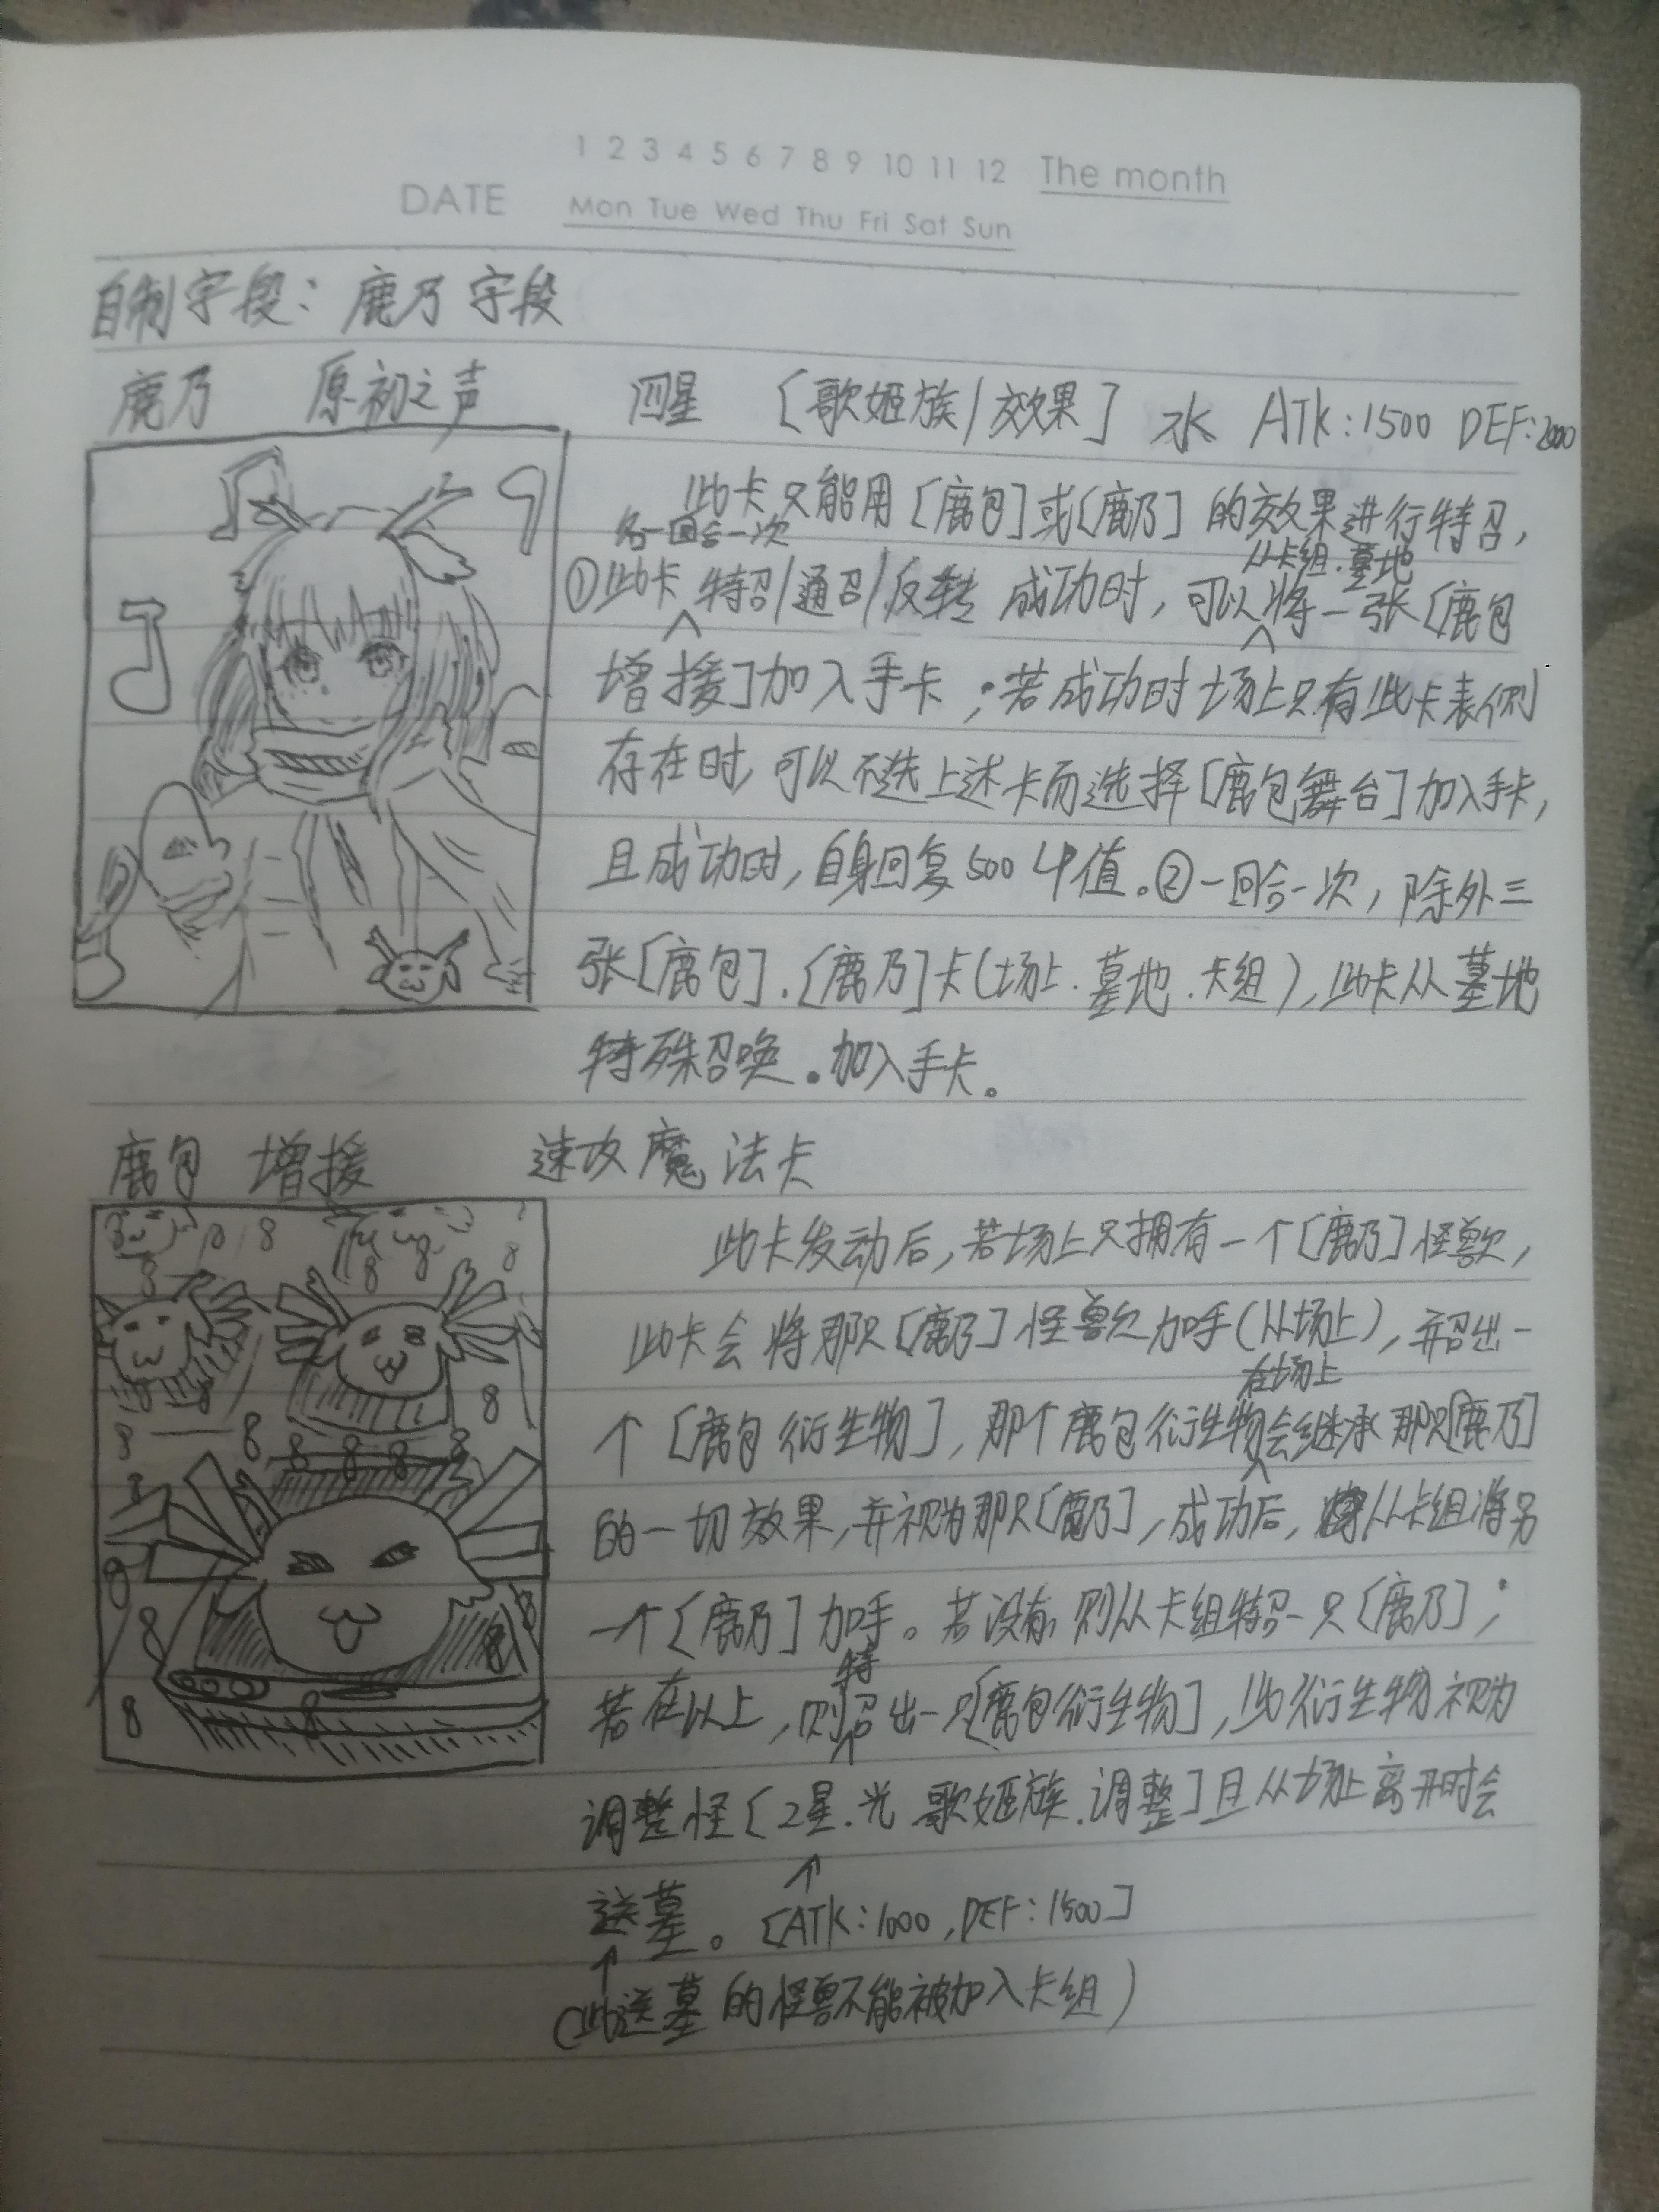 1 2 3 4 5 6 7 8 9 10 11 12 The month
DATE Mon Tue Wed Thu Fri Sat Sun
自制字段：鹿乃字段
鹿乃 原初之声 四星 [歌姬族/效果] 水 ATK:1500 DEF:2000
此卡只能用[鹿包]或[鹿乃]的效果进行特召，
各一回合一次 从卡组.墓地
①此卡特召/通召/反转成功时，可以将一张[鹿包
增援]加入手卡；若成功时场上只有此卡表侧
存在时，可以不选上述卡而选择[鹿包舞台]加入手卡，
且成功时，自身回复500LP值。②一回合一次，除外三
张[鹿包].[鹿乃]卡(场上.墓地.卡组)，此卡从墓地
特殊召唤.加入手卡。
鹿包 增援 速攻魔法卡
此卡发动后，若场上只拥有一个[鹿乃]怪兽，
此卡会将那只[鹿乃]怪兽加手(从场上)，并召出一
在场上
个[鹿包衍生物]，那个鹿包衍生物会继承那只[鹿乃]
的一切效果，并视为那只[鹿乃]，成功后，从卡组将另
一个[鹿乃]加手。若没有，则从卡组特召一只[鹿乃]；
特
若在以上，则召出一只[鹿包衍生物]，此衍生物视为
调整怪[2星.光 歌姬族.调整]且从场上离开时会
送墓。[ATK:1000,DEF:1500]
(此送墓的怪兽不能被加入卡组)
8 8 8 8 8 8 8 8 8 8 8 8 8 8